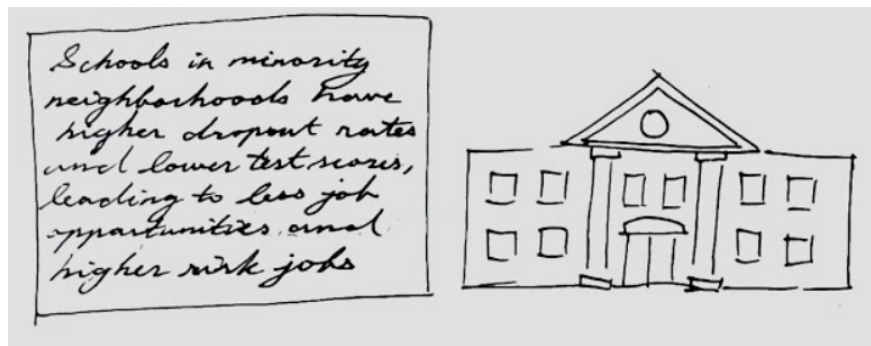 Schools in minority
neighborhoods have
higher dropout rates
and lower test scores,
leading to less job
opportunities and
higher risk jobs